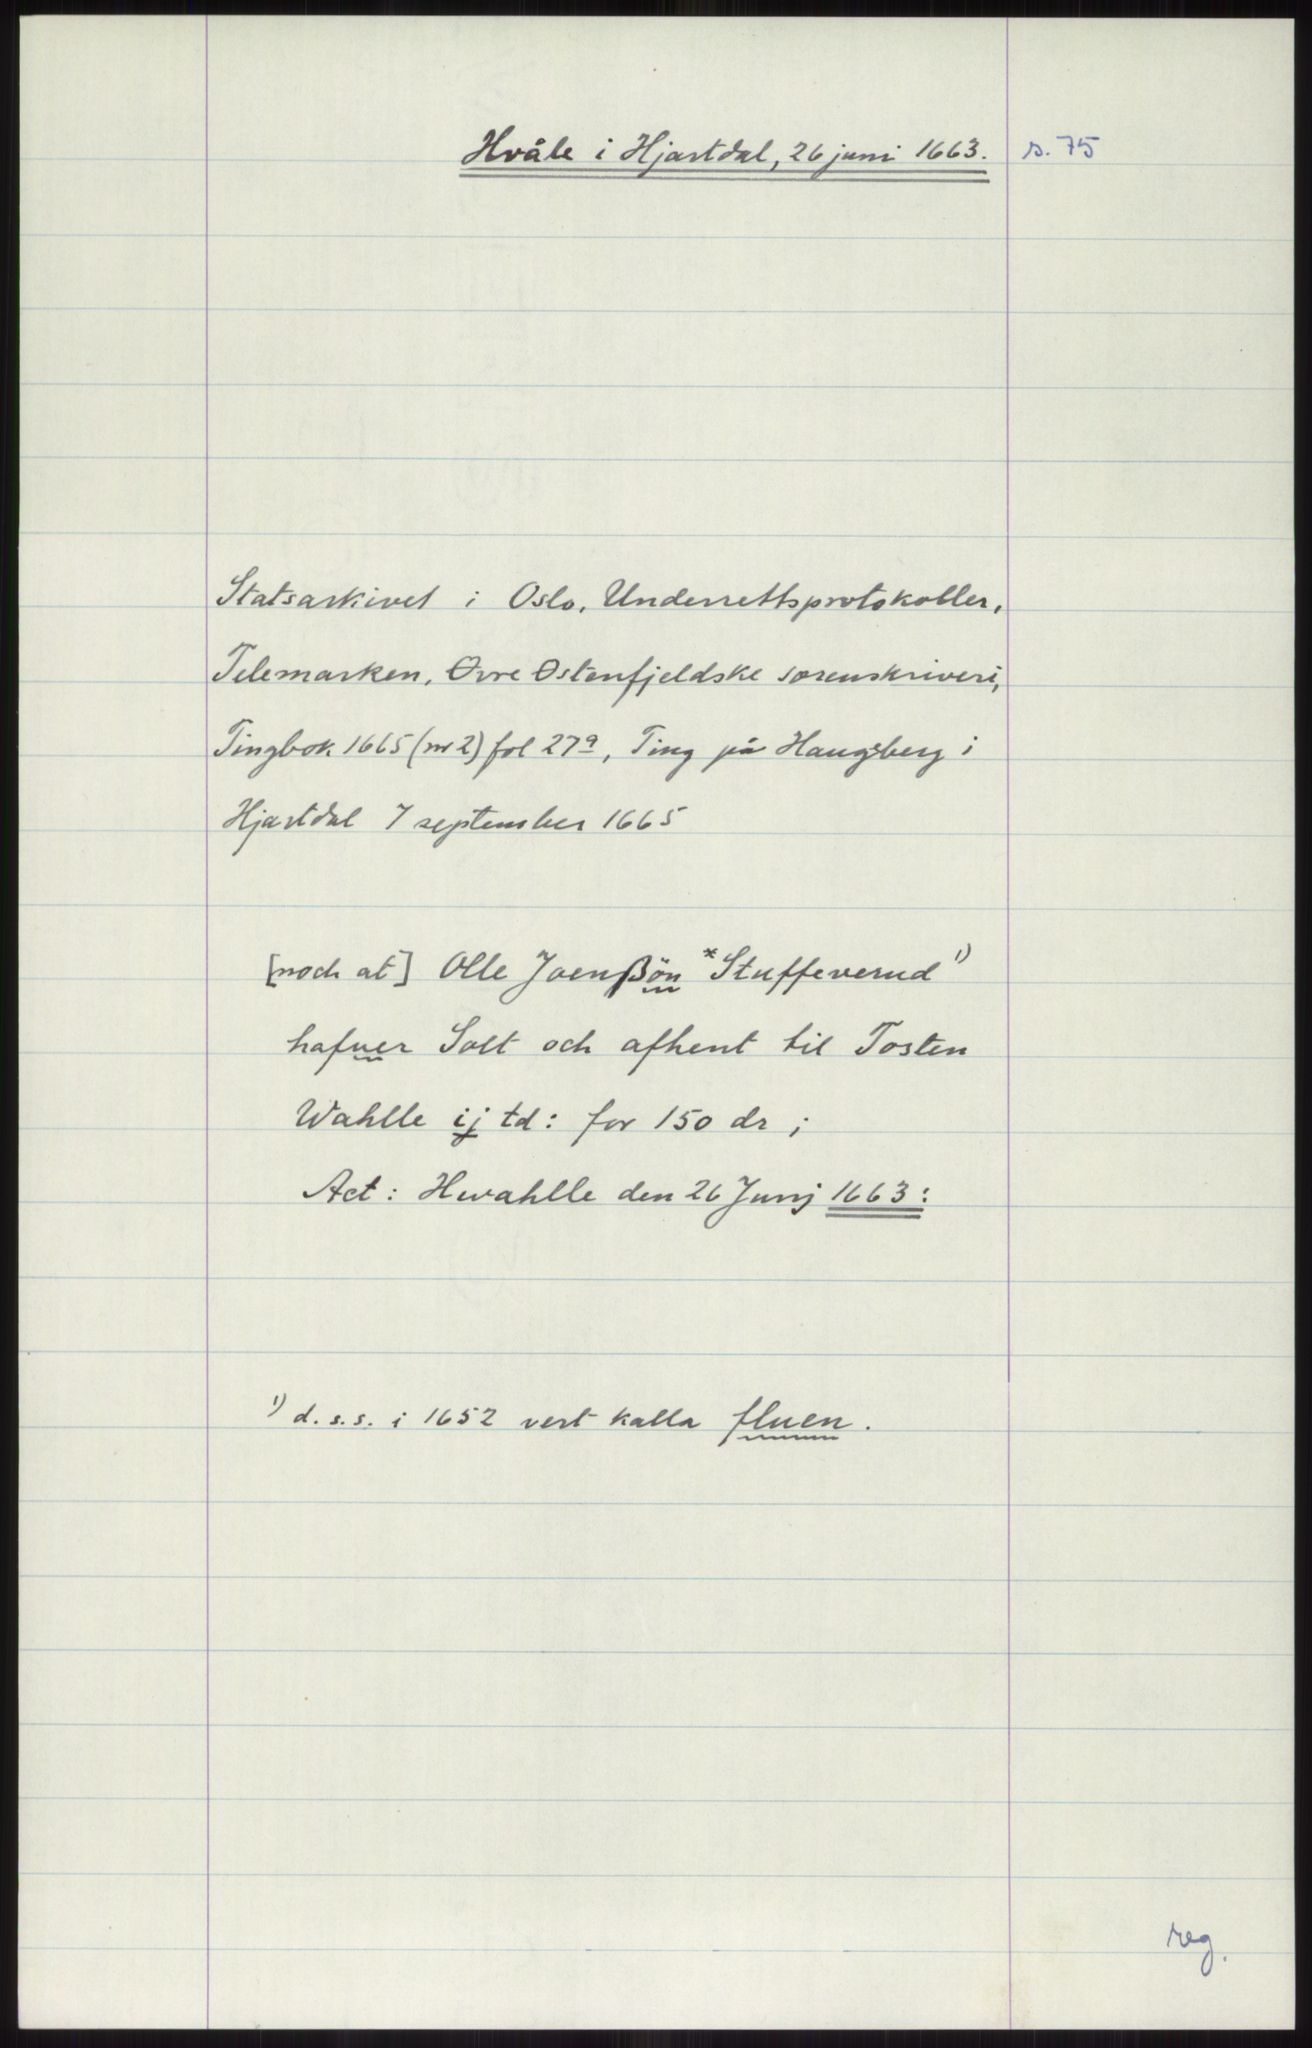 Hvåle i Hjartdal, 26 juni 1663. s. 75
Statsarkivet i Oslo, Underrettsprotokoller,
Telemarken, Øvre Østenfjeldske sorenskriveri,
Tingbok 1665 (nr 2) fol 27a, Ting på Haugsberg i
Hjartdal 7 september 1665
[noch at] Olle Joenßön *Stuffeverud 1)
hafuer Solt och afhent til Tosten
Wahlle ij td: for 150 dr ;
Act: Hwahlle den 26 Junj 1663:
1) d.s.s. i 1652 vert kalla fluen.
reg.